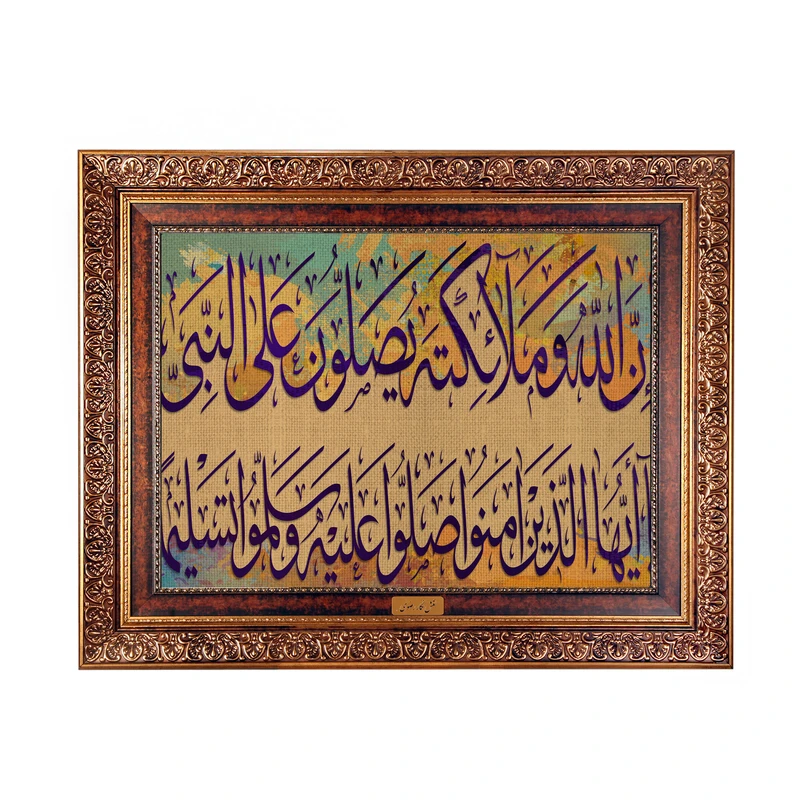 إِنَّ اللهَ وَمَلَآئِكَتَهُ يُصَلُّونَ عَلَى النَّبِيِّ
يَا أَيُّهَا الَّذِينَ آمَنُوا صَلُّوا عَلَيْهِ وَسَلِّمُوا تَسْلِيمًا